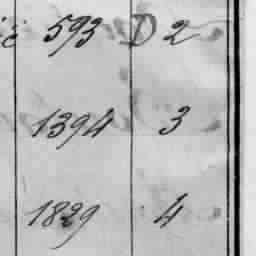 593 D 2
1394 3
1829 4